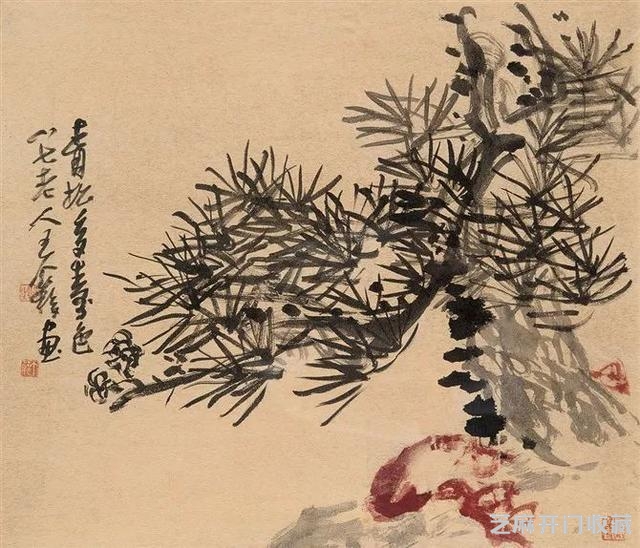 青松多寿色
八七老人王个簃画
芝麻开门收藏